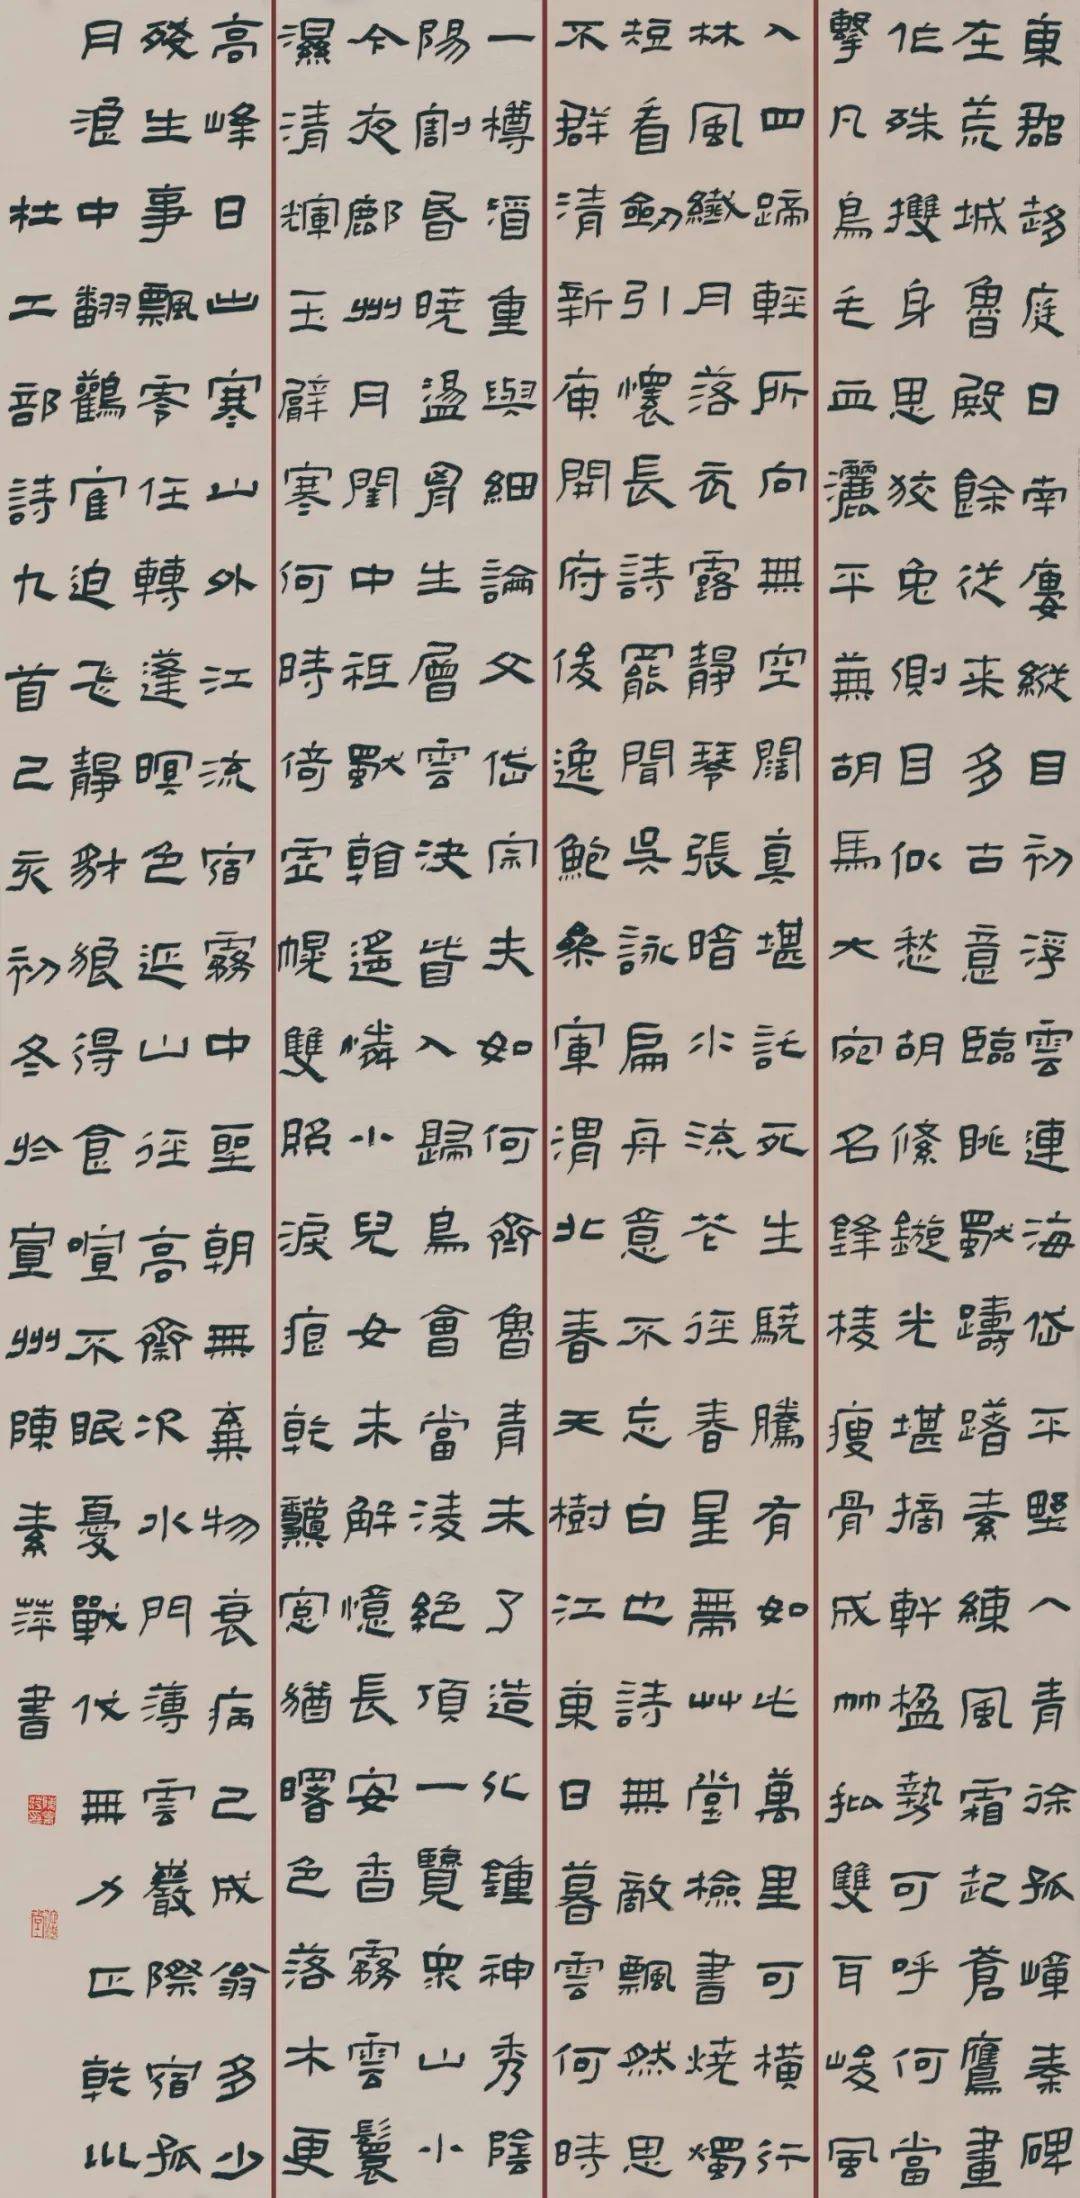 東郡趍庭日南廔縱目初浮雲連海岱平野入青徐孤嶂秦碑
在荒城魯殿餘從来多古意臨眺獨躊躇素練風霜起蒼鷹畫
作殊㩳身思狡兔側目似愁胡絛鏇光堪摘軒楹勢可呼何當
擊凡鳥毛血灑平蕪胡馬大宛名鋒棱瘦骨成竹批雙耳峻風
入四蹄輕所向無空闊真堪託死生驍騰有如此萬里可橫行
林風纖月落衣露靜琴張暗水流花徑春星帶草堂檢書燒燭
短看劒引懷長詩罷聞吳詠扁舟意不忘白也詩無敵飄然思
不群清新庾開府俊逸鮑參軍渭北春天樹江東日暮雲何時
一樽酒重與細論文岱宗夫如何齊魯青未了造化鍾神秀陰
陽割昏曉盪胷生層雲決眥入歸鳥會當淩絕頂一覽眾山小
今夜鄜州月閨中祇獨看遙憐小兒女未解憶長安香霧雲鬟
濕清輝玉臂寒何時倚虛幌雙照淚痕乾龝窓猶曙色落木更
高峰日出寒山外江流宿霧中聖朝無棄物衰病已成翁多少
殘生事飄零任轉蓬暝色延山徑高齋次水門薄雲巖際宿孤
月浪中翻鸛鶴追飛靜豺狼得食喧不眠憂戰伐無力正乾坤
杜工部詩九首己亥初冬於宣州陳素萍書